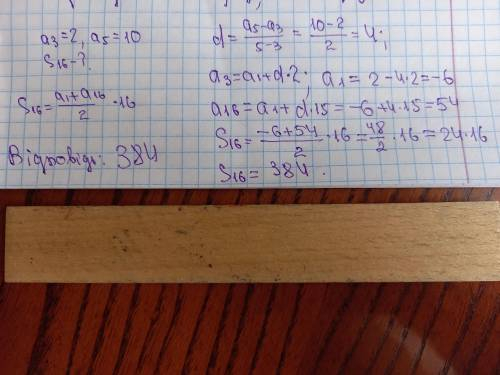 a₃=2, a₅=10
S₁₆-?
S₁₆=(a₁+a₁₆)/2·16
Відповідь: 384
d=(a₅-a₃)/(5-3)=(10-2)/2=4;
a₃=a₁+d·2; a₁=2-4·2=-6
a₁₆=a₁+d·15=-6+4·15=54
S₁₆=(-6+54)/2·16=48/2·16=24·16
S₁₆=384.